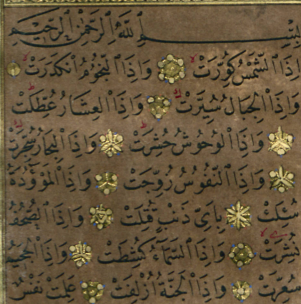 بِسْمِ ٱللَّهِ ٱلرَّحْمَٰنِ ٱلرَّحِيمِ
إِذَا ٱلشَّمْسُ كُوِّرَتْ وَإِذَا ٱلنُّجُومُ ٱنْكَدَرَتْ
وَإِذَا ٱلْجِبَالُ سُيِّرَتْ وَإِذَا ٱلْعِشَارُ عُطِّلَتْ
وَإِذَا ٱلْوُحُوشُ حُشِرَتْ وَإِذَا ٱلْبِحَارُ سُجِّرَتْ
وَإِذَا ٱلنُّفُوسُ زُوِّجَتْ وَإِذَا ٱلْمَوْءُدَةُ
سُئِلَتْ بِأَيِّ ذَنْبٍ قُتِلَتْ وَإِذَا ٱلصُّحُفُ
نُشِرَتْ وَإِذَا ٱلسَّمَاءُ كُشِطَتْ وَإِذَا ٱلْجَحِيمُ
سُعِّرَتْ وَإِذَا ٱلْجَنَّةُ أُزْلِفَتْ عَلِمَتْ نَفْسٌ